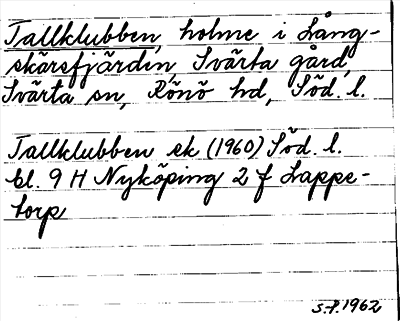 Tallklubben, holme i Lång-
skärsfjärden, Svärta gård,
Svärta sn, Rönö hd, Söd. l.
Tallklubben ek (1960) Söd. l.
bl. 9 H Nyköping 2 f Lappe-
torp
S.P. 1962